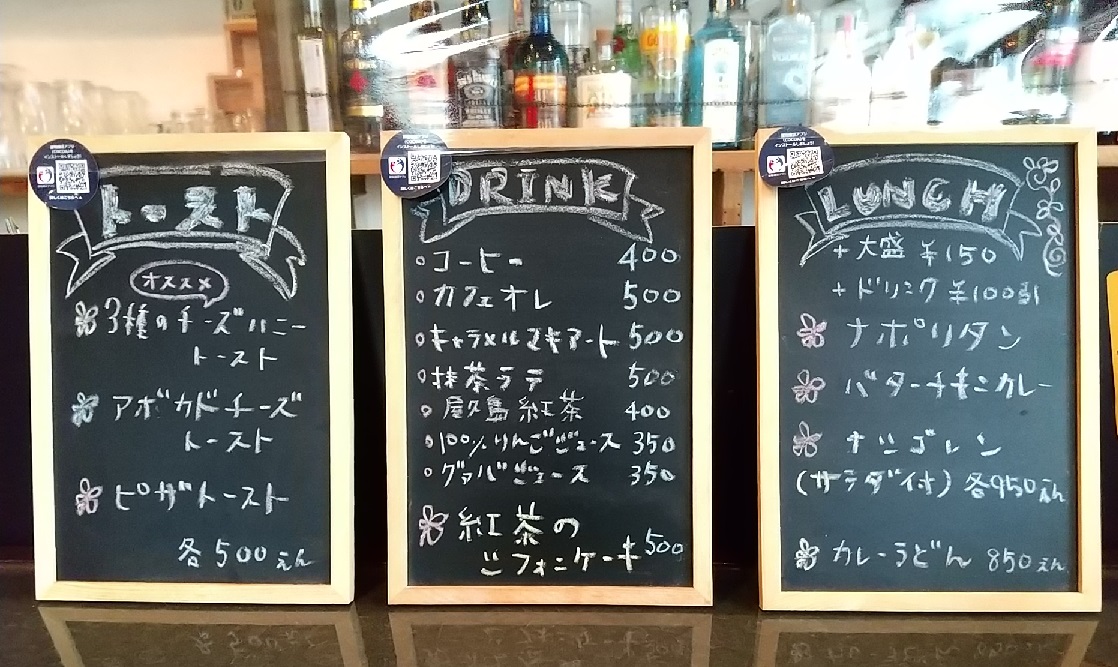 トースト
オススメ
3種のチーズハニー
トースト
アボカドチーズ
トースト
ピザトースト
各500えん
DRINK
コーヒー 400
カフェオレ 500
キャラメルマキアート 500
抹茶ラテ 500
屋久島紅茶 400
100%りんごジュース 350
グァバジュース 350
紅茶の
シフォンケーキ 500
LUNCH
+大盛 ¥150
+ドリンク ¥100引
ナポリタン
バターチキンカレー
ナシゴレン
(サラダ付) 各950えん
カレーうどん 850えん